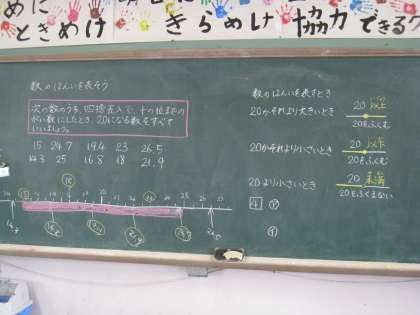 めに
ときめけ
きらめけ
協力
できる
数のはんいを表そう
次の数のうち、四捨五入で、十の位までの
がい数にしたとき、20になる数をすべて
いいましょう。
15 24.7 19.4 23 26.5
14.3 25 16.8 18 21.9
数のはんいを表すとき
20かそれより大きいとき 20以上
20をふくむ
20かそれより小さいとき 20以下
20をふくむ
20より小さいとき 20未満
20をふくまない
4 ㋐
㋑